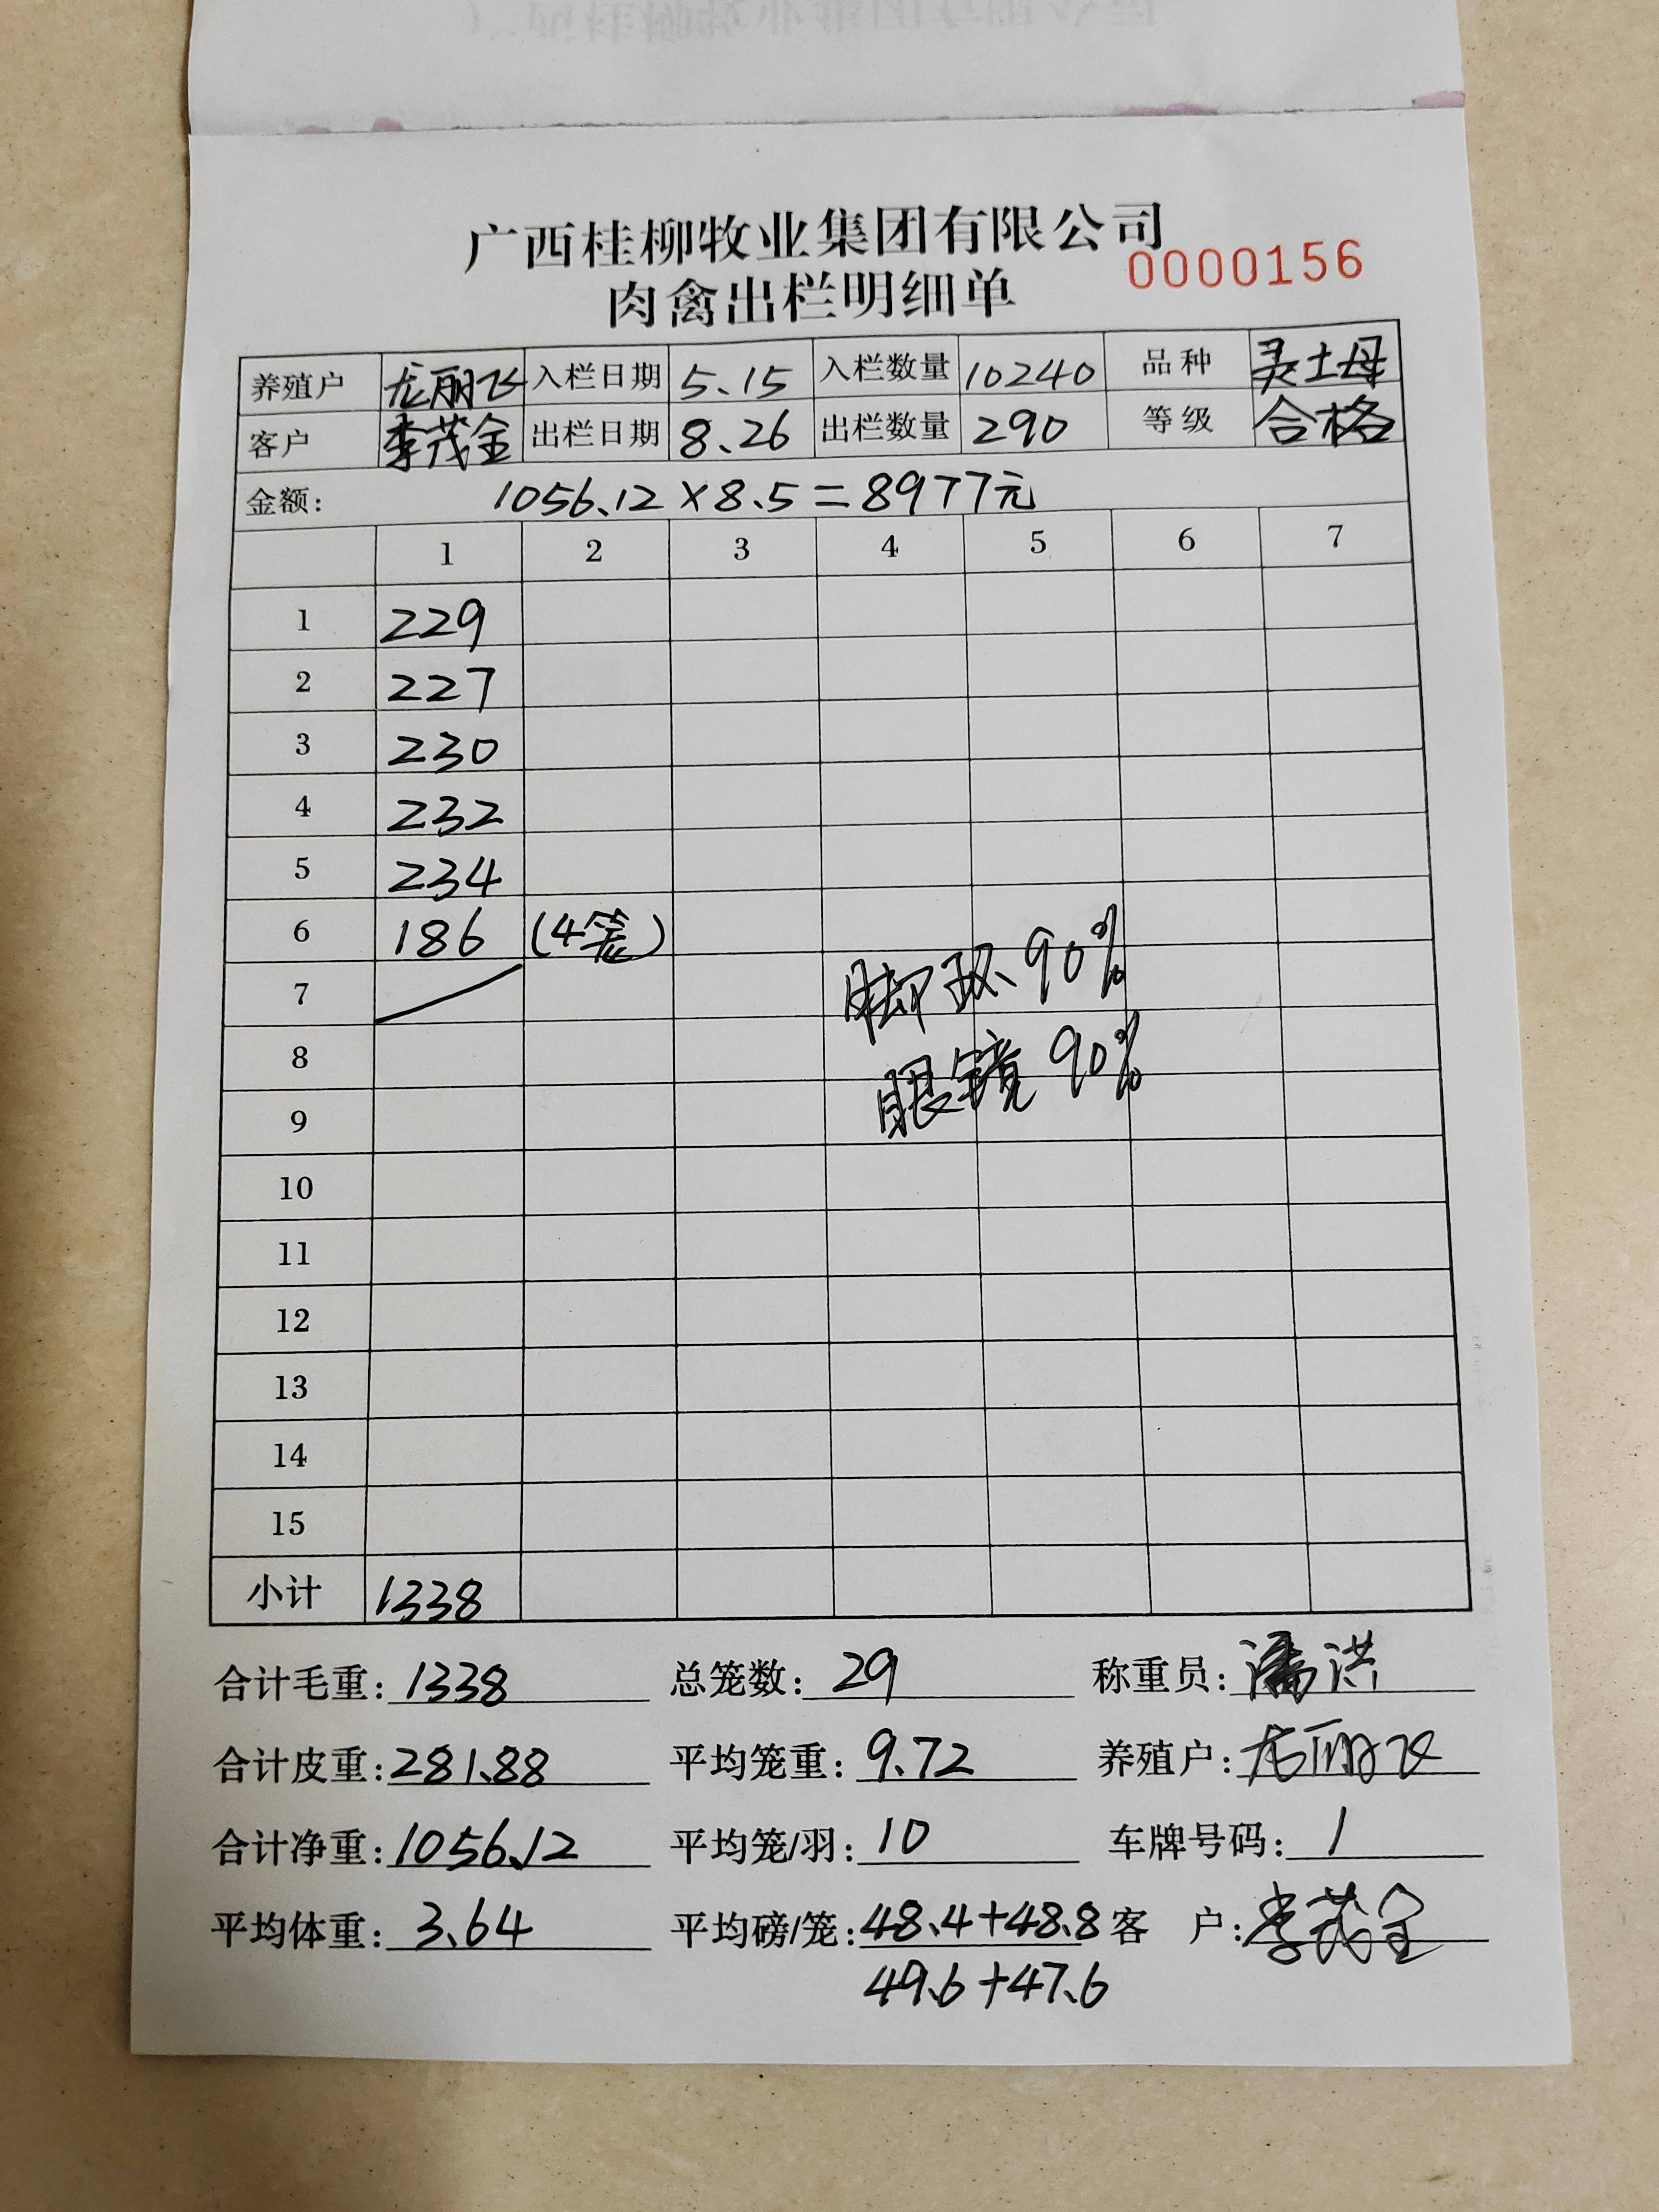 广西桂柳牧业集团有限公司
0000156
肉禽出栏明细单
养殖户 龙丽飞 入栏日期 5.15 入栏数量 10240 品种 灵土母
客户 李茂金 出栏日期 8.26 出栏数量 290 等级 合格
金额: 1056.12×8.5=8977元
1 2 3 4 5 6 7
1 229
2 227
3 230
4 232
5 234
6 186 (4笼)
7
脚环90%
8
眼镜90%
9
10
11
12
13
14
15
小计 1338
合计毛重: 1338 总笼数: 29 称重员: 潘洪
合计皮重: 281.88 平均笼重: 9.72 养殖户: 龙丽飞
合计净重: 1056.12 平均笼/羽: 10 车牌号码: 1
平均体重: 3.64 平均磅/笼: 48.4+48.8 客 户: 李茂金
49.6+47.6